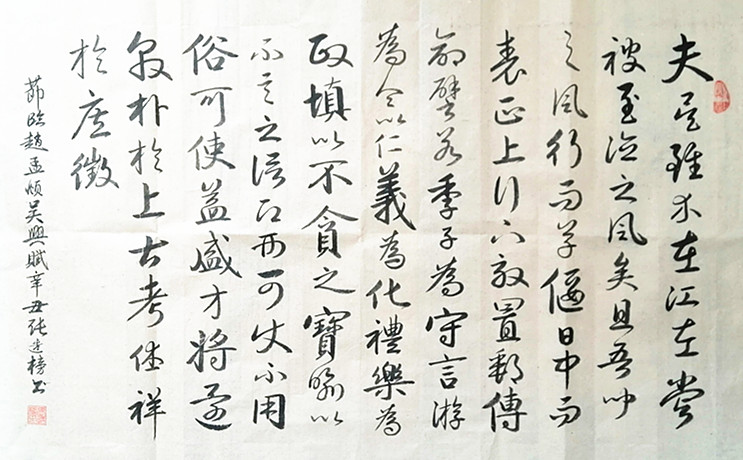 夫雖在江左嘗
被至德之風矣且吾聞
之風行而草偃日中而
表正上行下效置郵傳
命譬若季子為守言游
為令以仁義為化禮樂為
政填以不貪之寶喻以
不言之信刑可使不用
俗可使益盛才將還
敦朴於上古考休祥
於庶徵
節臨趙孟頫吳興賦辛丑張建榜書